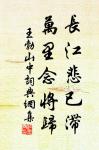 長江悲已滯
萬里念將歸
王勃山中詞興網集